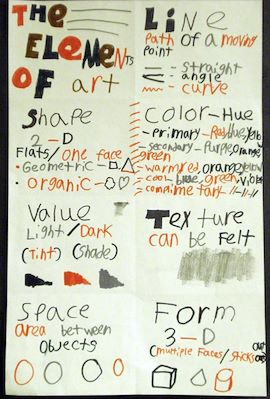 THE
ELEMENTS
OF art
LiNE
path of a moving
Point
- straight
angle
- curve
Shape
2 - D
Flats/one face
• Geometric -
• organic -
COLOR-Hue
- primary - Red blue yellow
- secondary - Purple orange green
- warm red, orange yellow
- cool blue, green, violet
Value
Light / Dark
(Tint) (Shade)
TexTure
can be felt
Space
area between
Objects
Form
3 - D
(multiple faces/sticks out